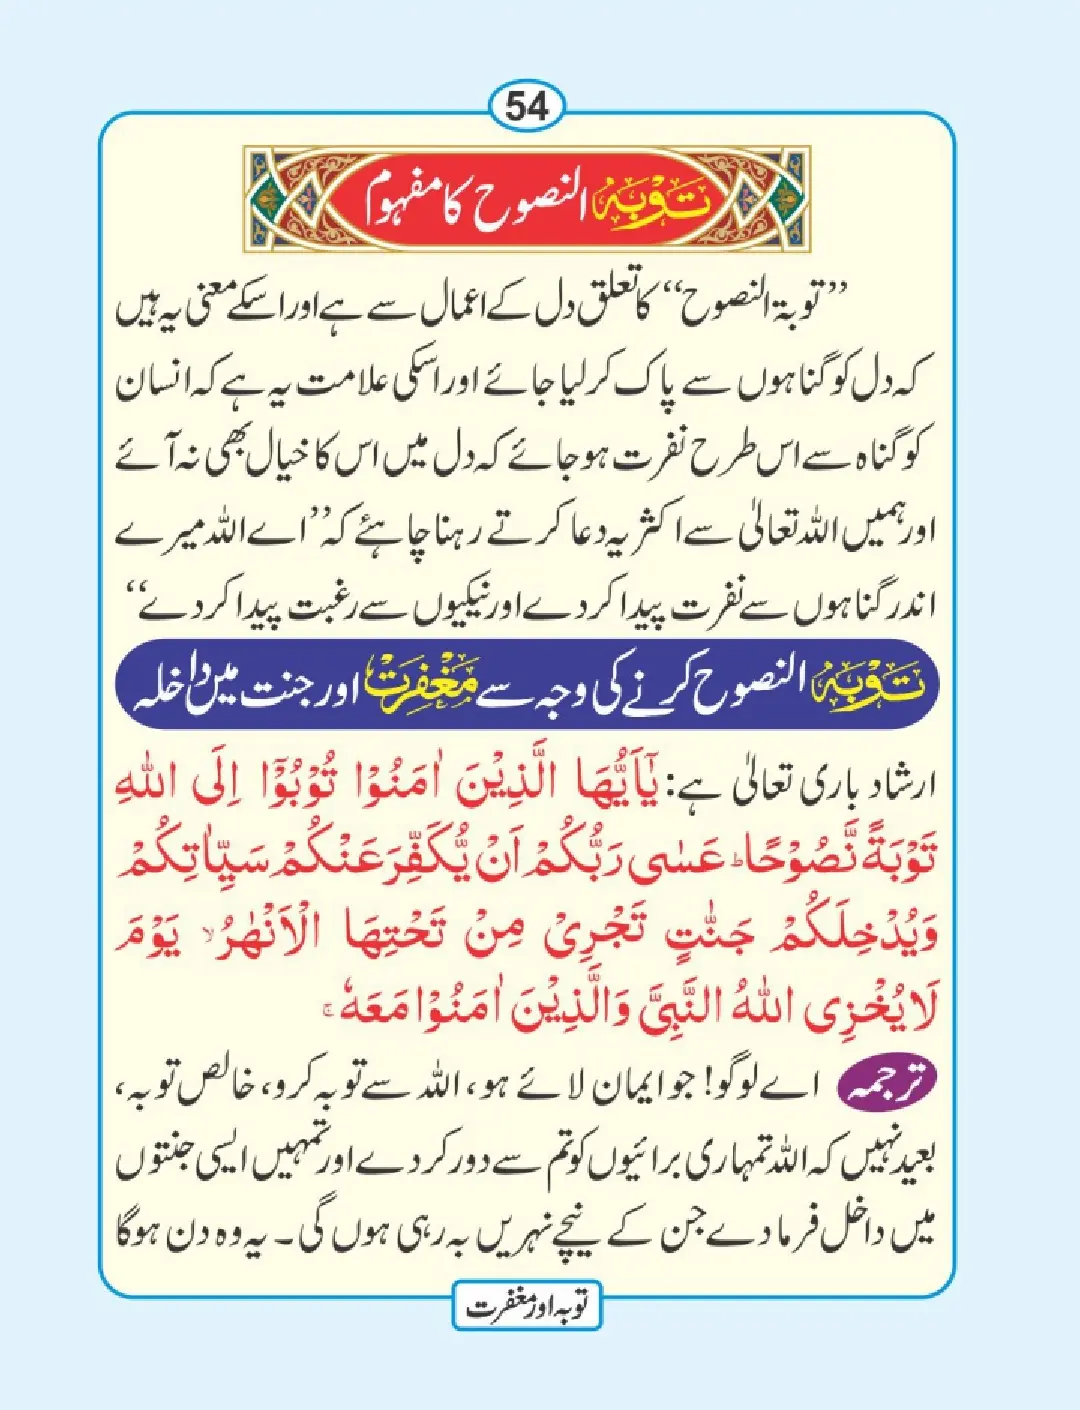 54
توبہ النصوح کا مفہوم
”توبۃ النصوح“ کا تعلق دل کے اعمال سے ہے اور اسکے معنی یہ ہیں
کہ دل کو گناہوں سے پاک کر لیا جائے اور اسکی علامت یہ ہے کہ انسان
کو گناہ سے اس طرح نفرت ہو جائے کہ دل میں اس کا خیال بھی نہ آئے
اور ہمیں اللہ تعالیٰ سے اکثر یہ دعا کرتے رہنا چاہئے کہ ”اے اللہ میرے
اندر گناہوں سے نفرت پیدا کر دے اور نیکیوں سے رغبت پیدا کر دے“
توبہ النصوح کرنے کی وجہ سے مغفرت اور جنت میں داخلہ
ارشاد باری تعالیٰ ہے: یٰٓاَیُّهَا الَّذِیْنَ اٰمَنُوْا تُوْبُوْٓا اِلَی اللهِ
تَوْبَةً نَّصُوْحًا ؕ عَسٰی رَبُّكُمْ اَنْ یُّكَفِّرَ عَنْكُمْ سَیِّاٰتِكُمْ
وَیُدْخِلَكُمْ جَنّٰتٍ تَجْرِیْ مِنْ تَحْتِهَا الْاَنْهٰرُ ۙ یَوْمَ
لَا یُخْزِی اللهُ النَّبِیَّ وَالَّذِیْنَ اٰمَنُوْا مَعَهٗ ۚ
ترجمہ اے لوگو! جو ایمان لائے ہو، اللہ سے توبہ کرو، خالص توبہ،
بعید نہیں کہ اللہ تمہاری برائیوں کو تم سے دور کر دے اور تمہیں ایسی جنتوں
میں داخل فرما دے جن کے نیچے نہریں بہ رہی ہوں گی۔ یہ وہ دن ہوگا
توبہ اور مغفرت